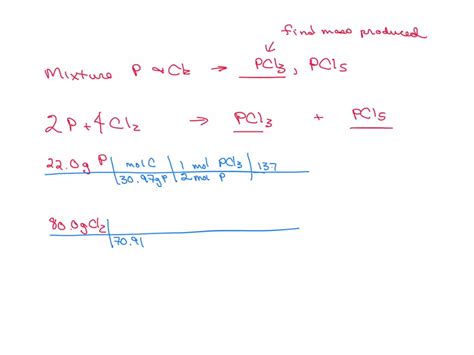 find mass produced
Mixture P & Cl2 → PCl3, PCl5
2P + 4Cl2 → PCl3 + PCl5
22.0g P | mol C | 1 mol PCl3 | 137
30.97g P | 2 mol P
80.0g Cl2
70.91